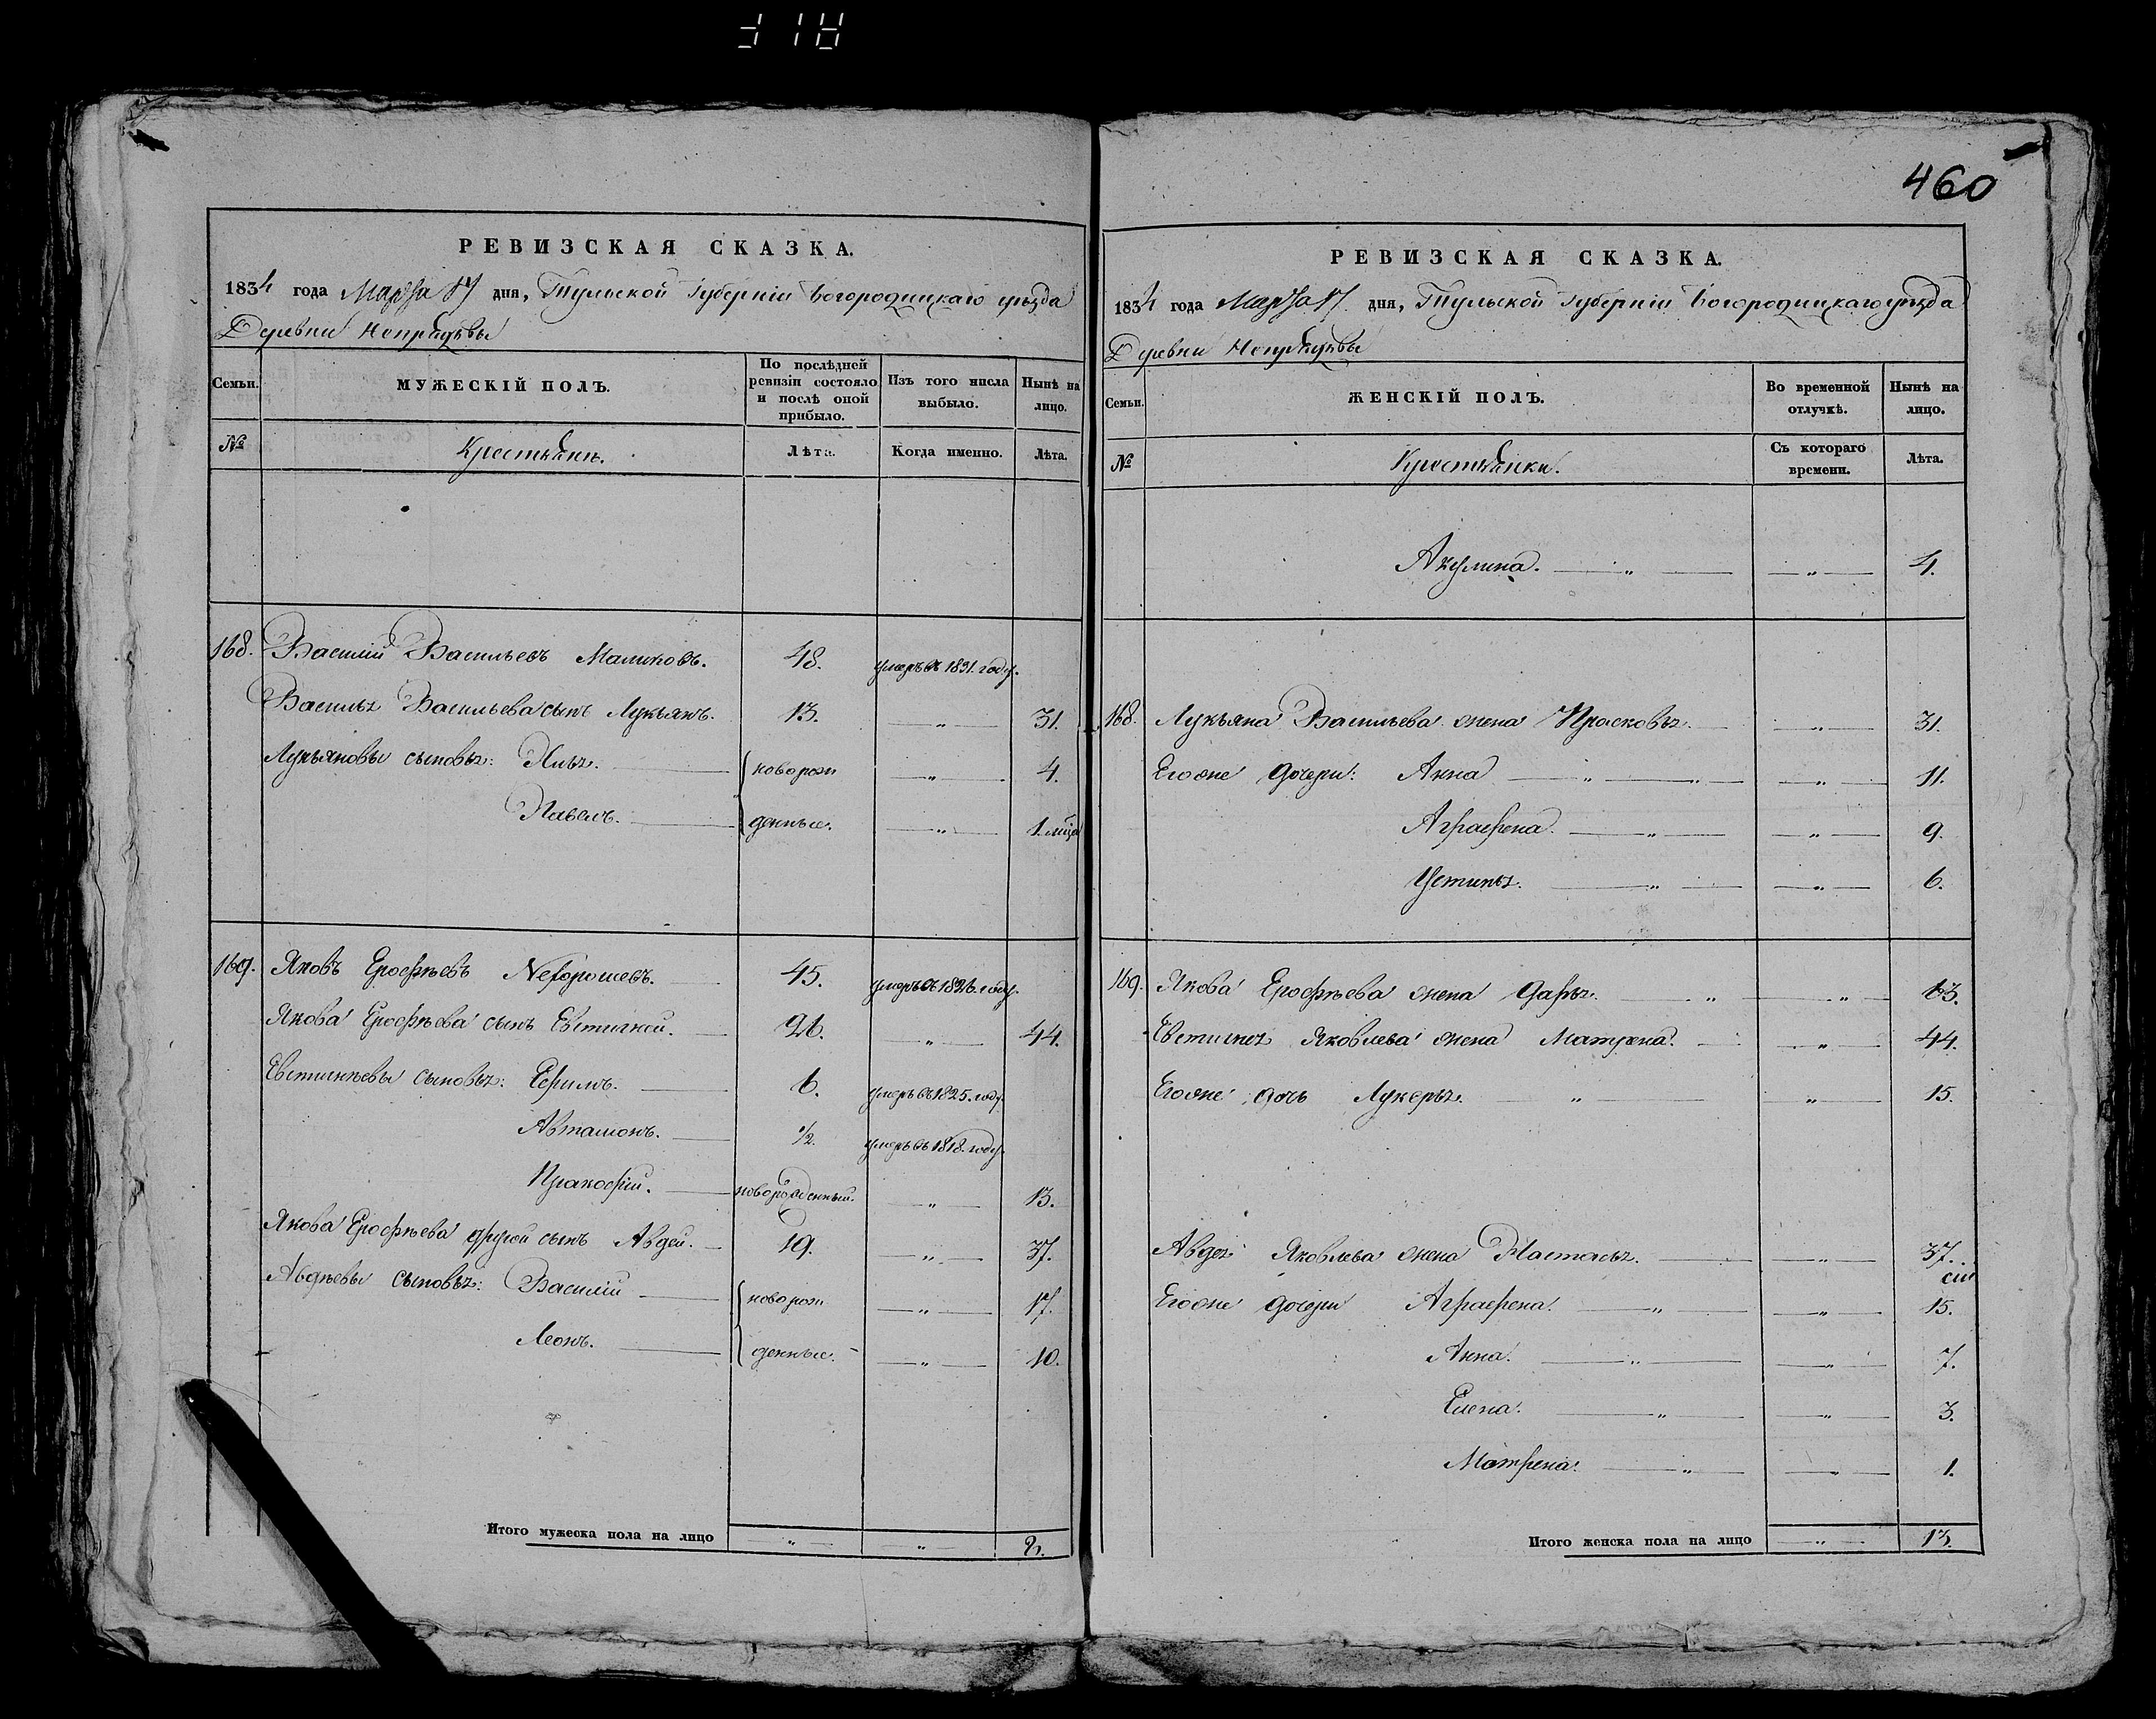 460
РЕВИЗСКАЯ СКАЗКА.
1834 года Марта 17 дня, Тульской Губерніи Богородицкаго уѣзда
Деревни Непрядвы
Семьи. МУЖЕСКІЙ ПОЛЪ. По послѣдней ревизіи состояло и послѣ оной прибыло. Изъ того числа выбыло. Нынѣ на лицо.
№ Крестьяне. Лѣта. Когда именно. Лѣта.
168. Василій Васильевъ Маликовъ. 48. умеръ въ 1831. году.
Василья Васильева сынъ Лукьянъ. 13. „ 31.
Лукьяновы сыновья: Илья. новорож „ 4.
Павелъ. денные. „ 1. мца
169. Яковъ Ерофѣевъ Нехорошевъ. 45. умеръ въ 1826. году.
Якова Ерофѣева сынъ Евтигней. 26. „ 44.
Евтигнѣевы сыновья: Ефимъ. 6. умеръ въ 1825. году.
Автамонъ. 1/2. умеръ въ 1818. году.
Пракофій. новорожденный. „ 13.
Якова Ерофѣева другой сынъ Авдей. 19. „ 37.
Авдѣевы сыновья: Василій новорож „ 17.
Леонъ. денные. „ 10.
Итого мужеска пола на лицо „ „ 8.
РЕВИЗСКАЯ СКАЗКА.
1834 года Марта 17 дня, Тульской Губерніи Богородицкаго уѣзда
Деревни Непрядвы
Семьи. ЖЕНСКІЙ ПОЛЪ. Во временной отлучкѣ. Нынѣ на лицо.
№ Крестьянки. Съ котораго времени. Лѣта.
Акулина. „ „ 4.
168. Лукьяна Васильева жена Прасковья. „ 31.
Егоже дочери: Анна „ „ „ 11.
Аграфена. „ „ 9.
Устинья. „ „ 6.
169. Якова Ерофѣева жена Дарья. „ „ 63.
Евтигнея Яковлева жена Матрена. „ 44.
Егоже дочь Лукерья. „ „ 15.
Авдея Яковлева жена Настасья. „ 37.
Егоже дочери Аграфена. „ „ 15.
Анна. „ „ 7.
Елена. „ „ 3.
Матрена. „ „ 1.
Итого женска пола на лицо „ 13.